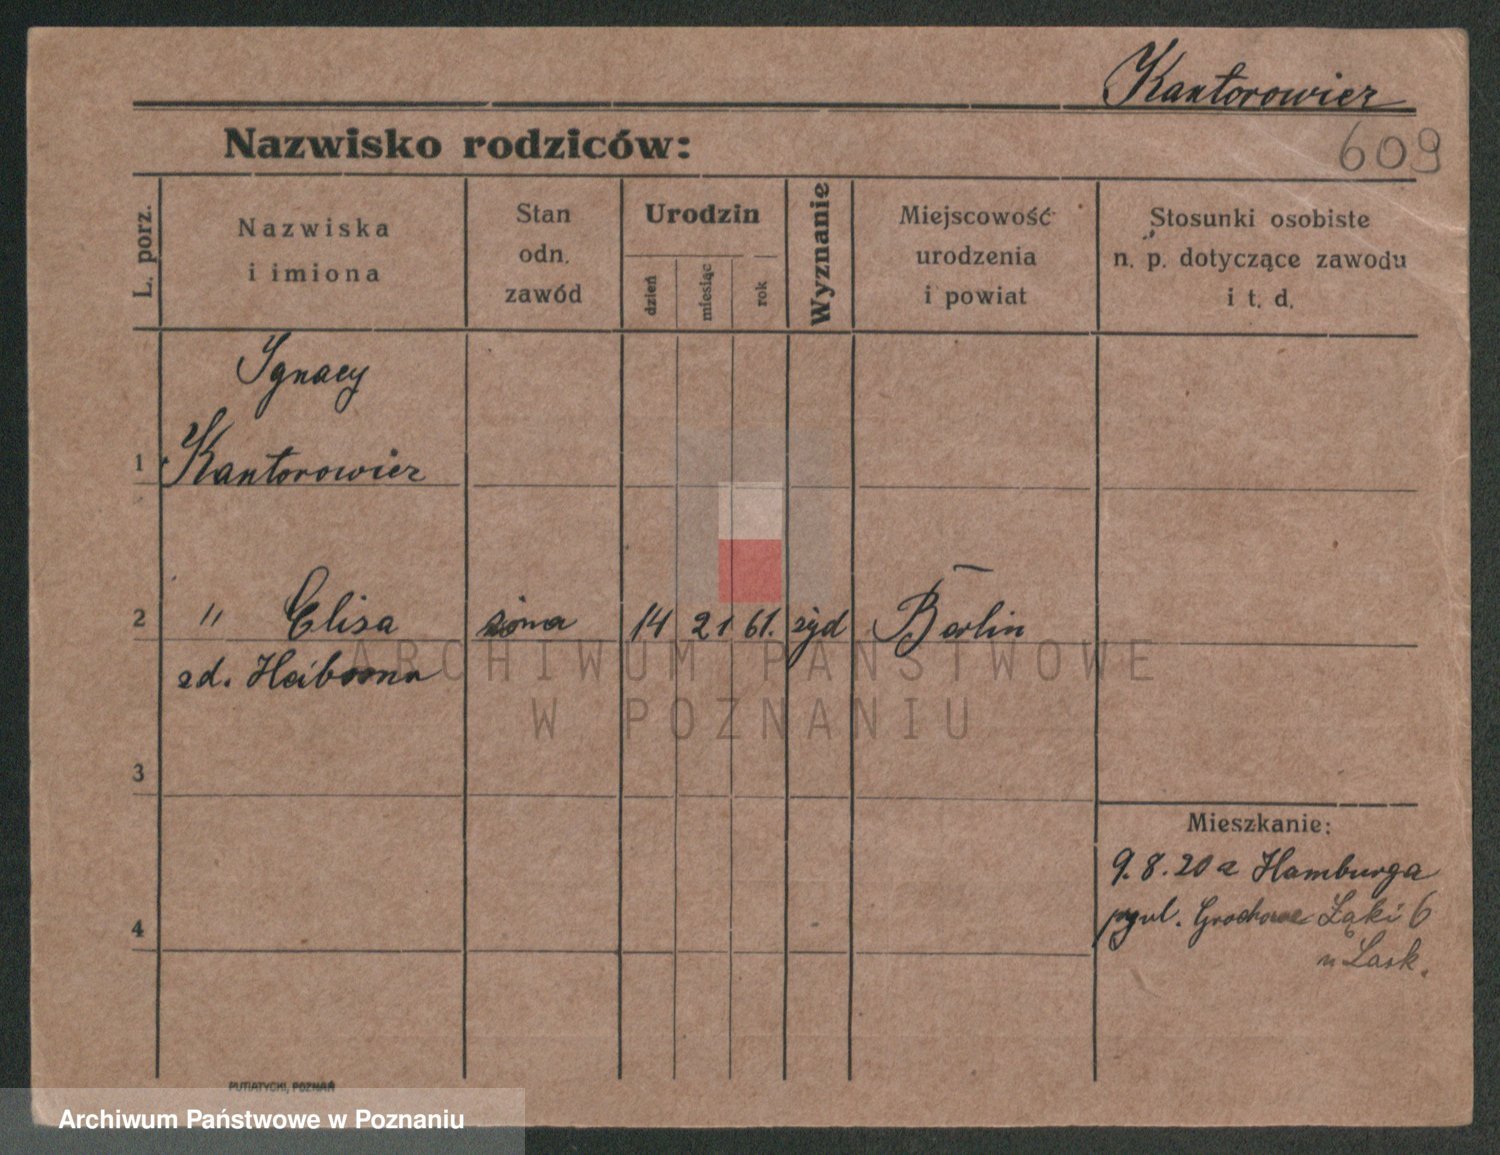 Kantorowicz
Nazwisko rodziców:
609
L. porz.
Nazwiska
i imiona
Stan
odn.
zawód
Urodzin
dzień
miesiąc
rok
Wyznanie
Miejscowość
urodzenia
i powiat
Stosunki osobiste
n. p. dotyczące zawodu
i t. d.
Ignacy
1 Kantorowicz
2 " Elisa żona 14 21 61. żyd Berlin
zd.
ARCHIWUM PAŃSTWOWE
W POZNANIU
3
Mieszkanie:
9.8.20 z Hamburga
Grochowe Łąki 6
4
u Lask.
PUTIATYCKI, POZNAŃ
Archiwum Państwowe w Poznaniu